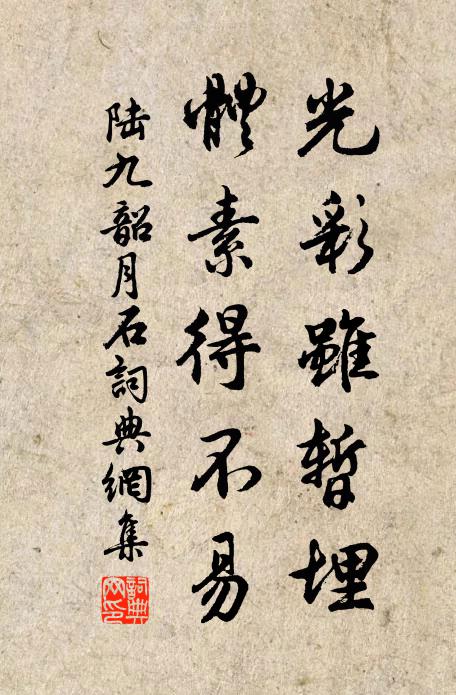 光彩雖暫埋
體素得不易
陸九韶月石詞典網集
詞典網印